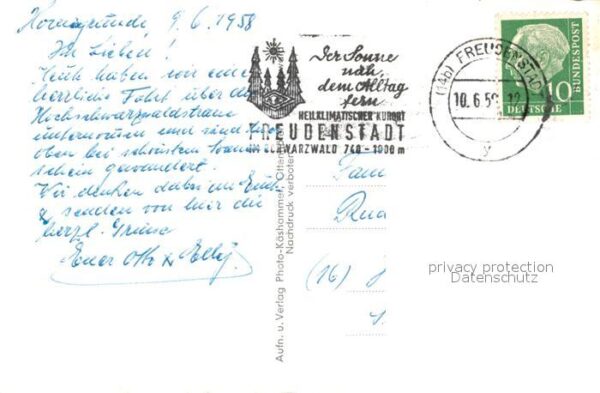 Hornisgrinde 9.6.1958
Ihr Lieben!
Heute haben wir eine
herrliche Fahrt über die
Hochschwarzwaldstrasse
unternommen und sind hier
oben bei schönstem Sonnen-
schein gewandert.
Wir denken dabei an Euch
& senden von hier die
herzl. Grüsse
Euer Otto & Elly.
Aufn. u. Verlag Photo-Käshammer,
Nachdruck verboten
Der Sonne
nah,
dem Alltag
fern
HEILKLIMATISCHER KURORT
FREUDENSTADT
IM SCHWARZWALD 740-1000 m
(14b) FREUDENSTADT
10.6.58
y
DEUTSCHE
BUNDESPOST
10
Fam
(16)
privacy protection
Datenschutz